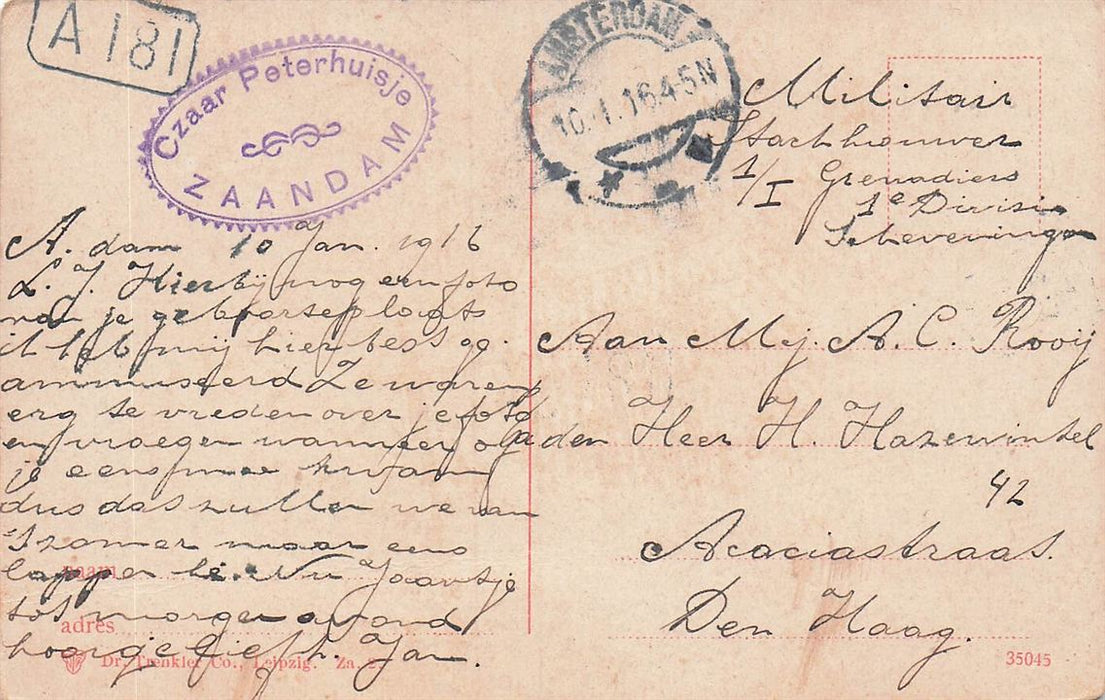 A 181
Czaar Peterhuisje
ZAANDAM
AMSTERDAM
10.1.16.4-5N
Militair
Stachhouwer
1/I Grenadiers
1e Divisie
Scheveningen
A. dam 10 Jan. 1916
L. J. Hierbij nog een foto
van je geboorseplaats
ik heb mij hier best ge-
ammuseerd Ze waren
erg te vreden over je foto
en vroegen wanneer of
je eens mee kwam
dus dat zullen we van
't zomer maar eens
lappen hè. Nu Jaantje
tot morgen avond
hoor je liefh. Jan.
Aan Mej. A. C. Rooij
p/a den Heer H. Hazewinkel
42
Acaciastraat.
Den Haag.
naam
adres
Dr. Trenkler Co., Leipzig. Za. 2.
35045